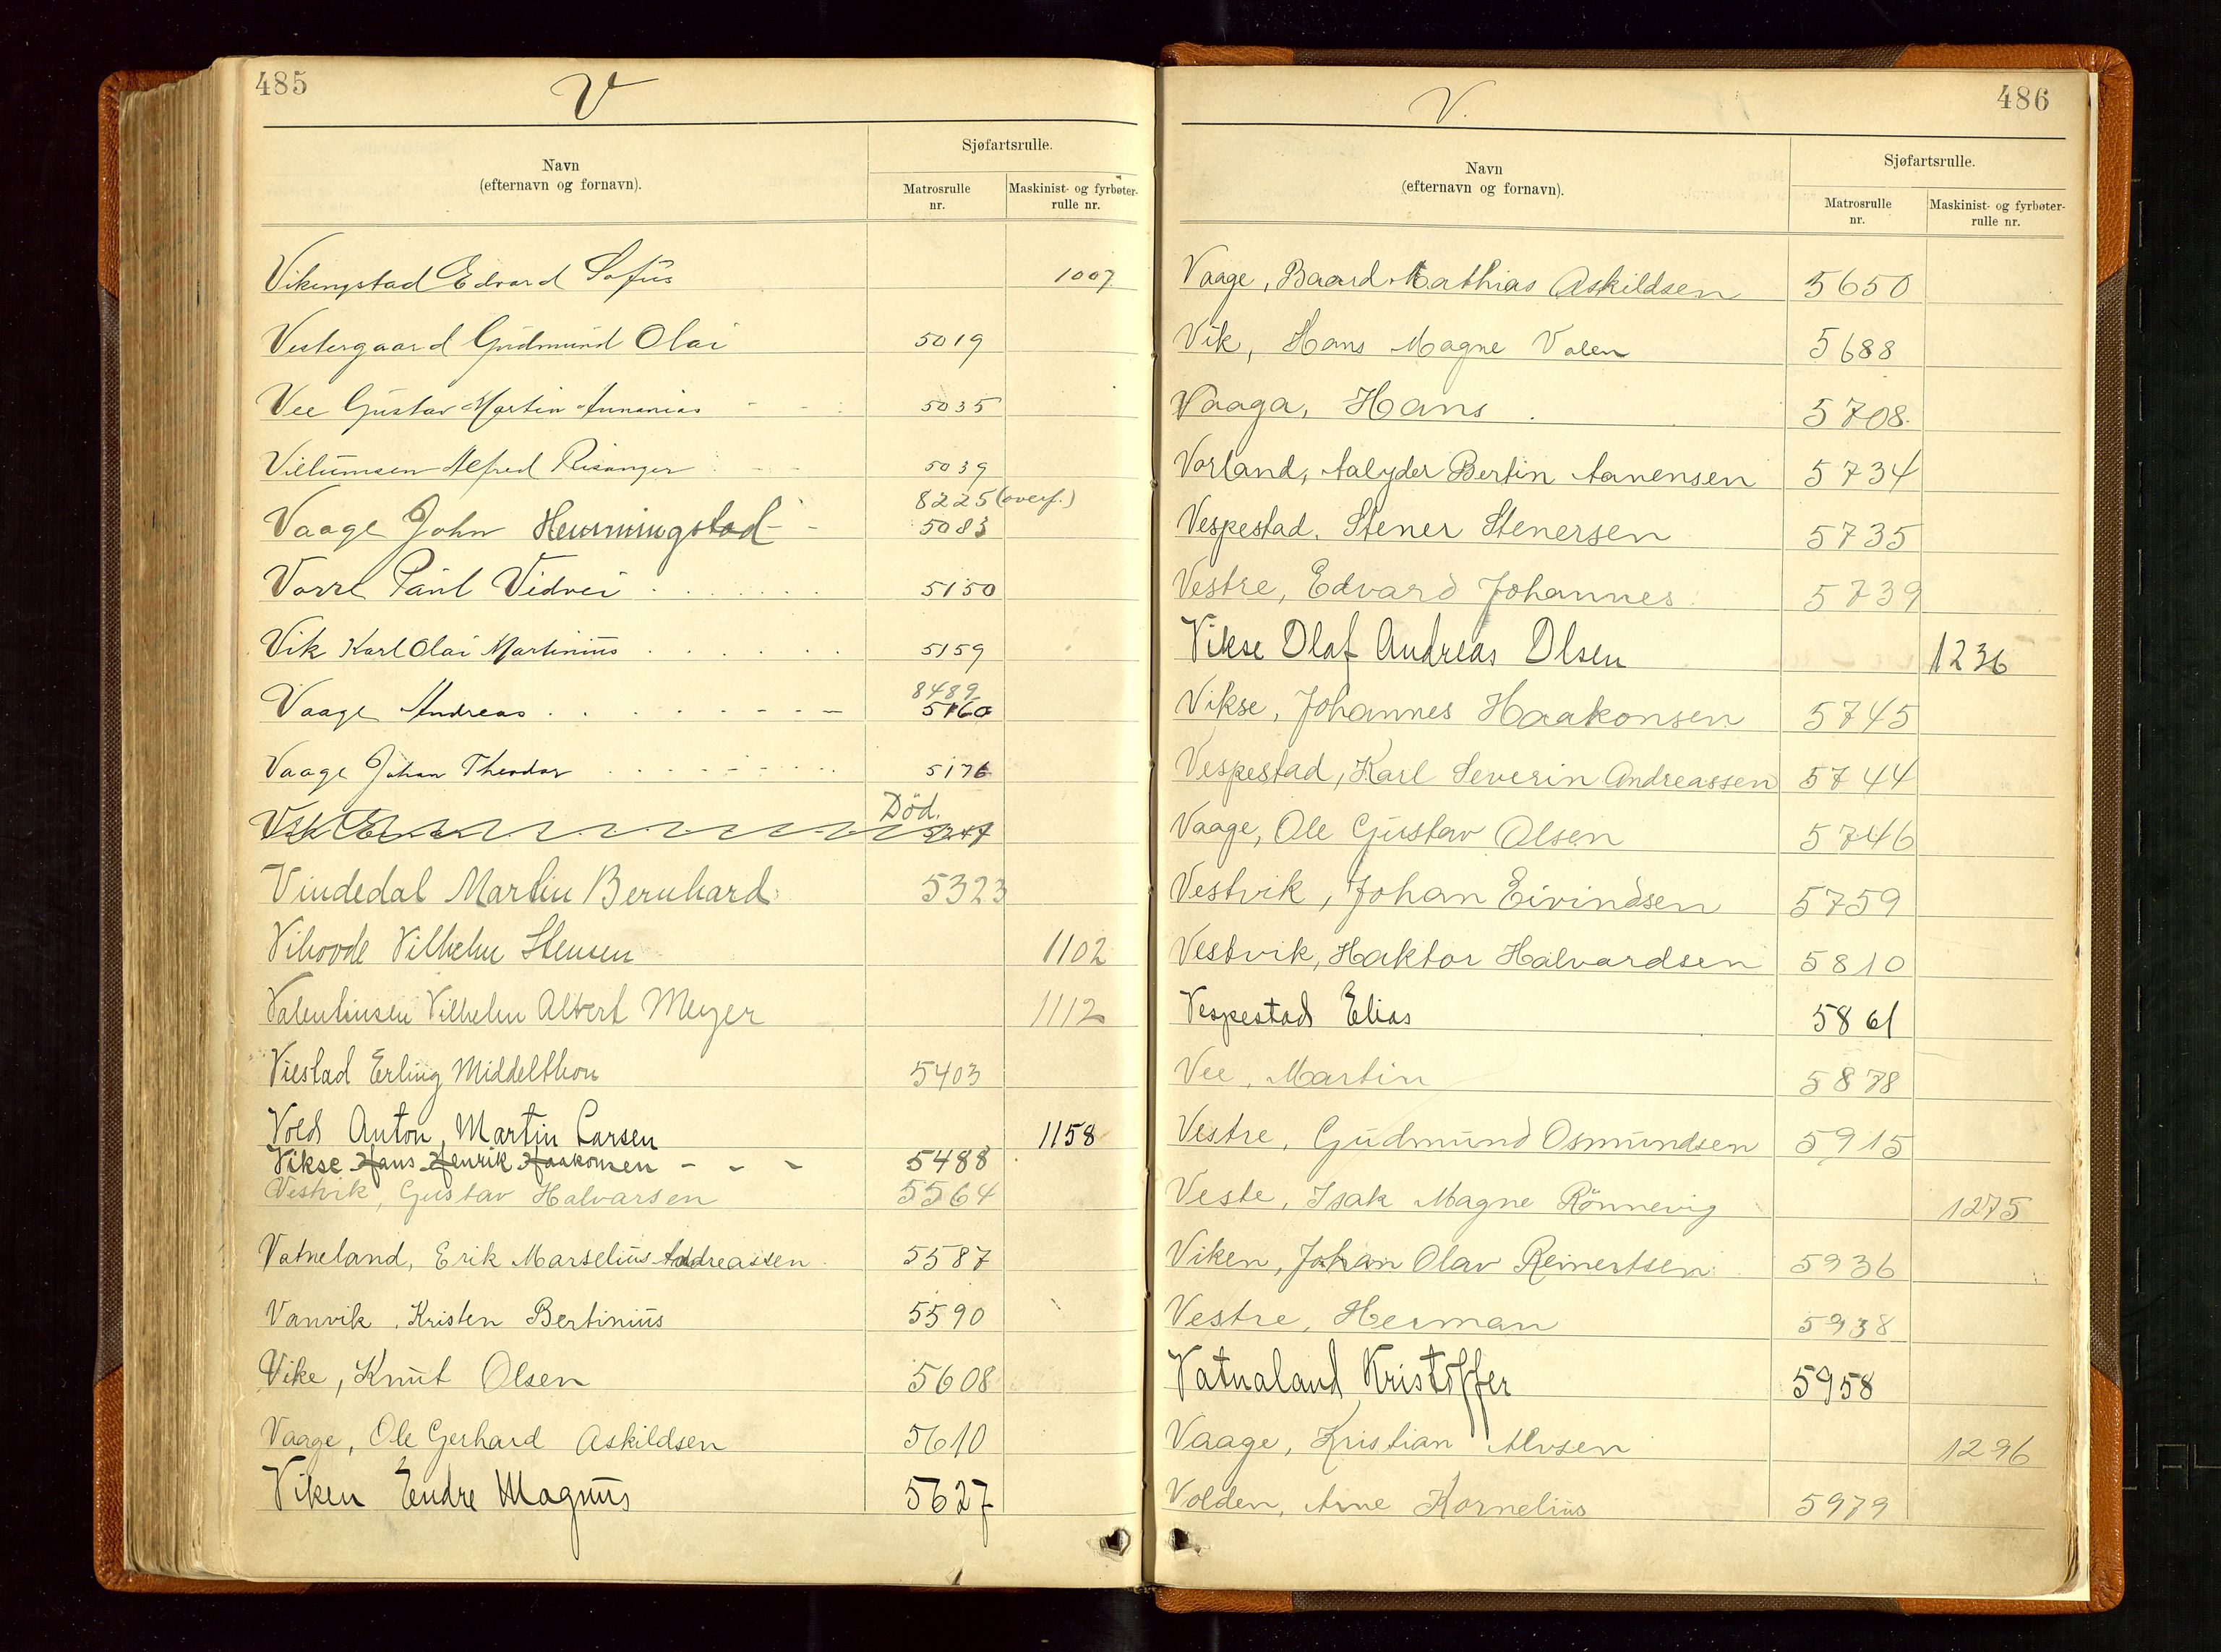 485
V
Navn
(efternavn og fornavn).
Sjøfartsrulle.
Matrosrulle
nr.
Maskinist- og fyrbøter-
rulle nr.
Vikingstad Edvard Sofus 1007
Vestergaard Gudmund Olai 5019
Vee Gustav Martin Annanias 5035
Villumsen Alfred Risanger 5039
8225 (overf.)
Vaage John Henningstad 5083
Vorre Paul Vidvei 5150
Vik Karl Olai Martinius 5159
8489
Vaage Andreas 5160
Vaage Johan Theodor 5176
Død.
Vik
Vindedal Martin Bernhard 5323
Vihovde Vilhelm Stensen 1102
Valentinsen Vilhelm Albert Meyer 1112
Viestad Erling Middelthon 5403
Vold Anton Martin Larsen 1158
Vikse Hans Henrik Haakonsen 5488
Vestvik, Gustav Halvarsen 5564
Vatneland, Erik Marselius Andreassen 5587
Vanvik, Kristen Bertinius 5590
Vike, Knut Olsen 5608
Vaage, Ole Gerhard Askildsen 5610
Viken Endre Magnus 5627
486
V.
Navn
(efternavn og fornavn).
Sjøfartsrulle.
Matrosrulle
nr.
Maskinist- og fyrbøter-
rulle nr.
Vaage, Baard Mathias Askildsen 5650
Vik, Hans Magne Valen 5688
Vaaga, Hans 5708.
Vorland, Aalyder Bertin Aanensen 5734
Vespestad, Stener Stenersen 5735
Vestre, Edvard Johannes 5739
Vikse Olaf Andreas Olsen 1236
Vikse, Johannes Haakonsen 5745
Vespestad, Karl Severin Andreassen 5744
Vaage, Ole Gustav Olsen 5746
Vestvik, Johan Eivindsen 5759
Vestvik, Haktor Halvardsen 5810
Vespestad Elias 5861
Vee, Martin 5878
Vestre, Gudmund Osmundsen 5915
Veste, Isak Magne Rönnevig 1275
Viken, Johan Olav Reinertsen 5936
Vestre, Herman 5938
Vatnaland Kristoffer 5958
Vaage, Kristian Alvsen 1296
Volden, Arne Kornelius 5979